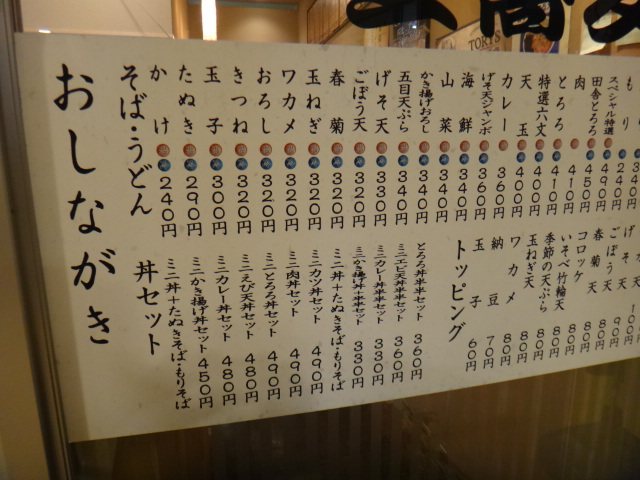 おしながき
そば・うどん
かけ 240円
たぬき 290円
玉子 300円
きつね 320円
おろし 320円
ワカメ 320円
玉ねぎ 320円
春菊 320円
ごぼう天 320円
げそ天 330円
五目天ぷら 340円
かき揚げおろし 340円
山菜 340円
海鮮 340円
げそ天ジャンボ 360円
カレー 360円
天玉 400円
特選六文 400円
とろろ 410円
肉 410円
田舎とろろ 450円
スペシャル特選 490円
もり 240円
丼セット
ミニ丼+たぬきそば・もりそば
ミニかき揚げ丼セット 450円
ミニカレー丼セット 480円
ミニえび天丼セット 480円
ミニとろろ丼セット 490円
ミニ肉丼セット 490円
ミニカツ丼セット 490円
ミニ丼+たぬきそば・もりそば
ミニかき揚げ丼半半セット 330円
ミニカレー丼半半セット 330円
ミニエビ天丼半半セット 360円
とろろ丼半半セット 360円
トッピング
玉子 60円
納豆 70円
ワカメ 80円
玉ねぎ天 80円
季節の天ぷら 80円
いそべ竹輪天 80円
コロッケ 80円
春菊天 80円
ごぼう天 90円
げそ天